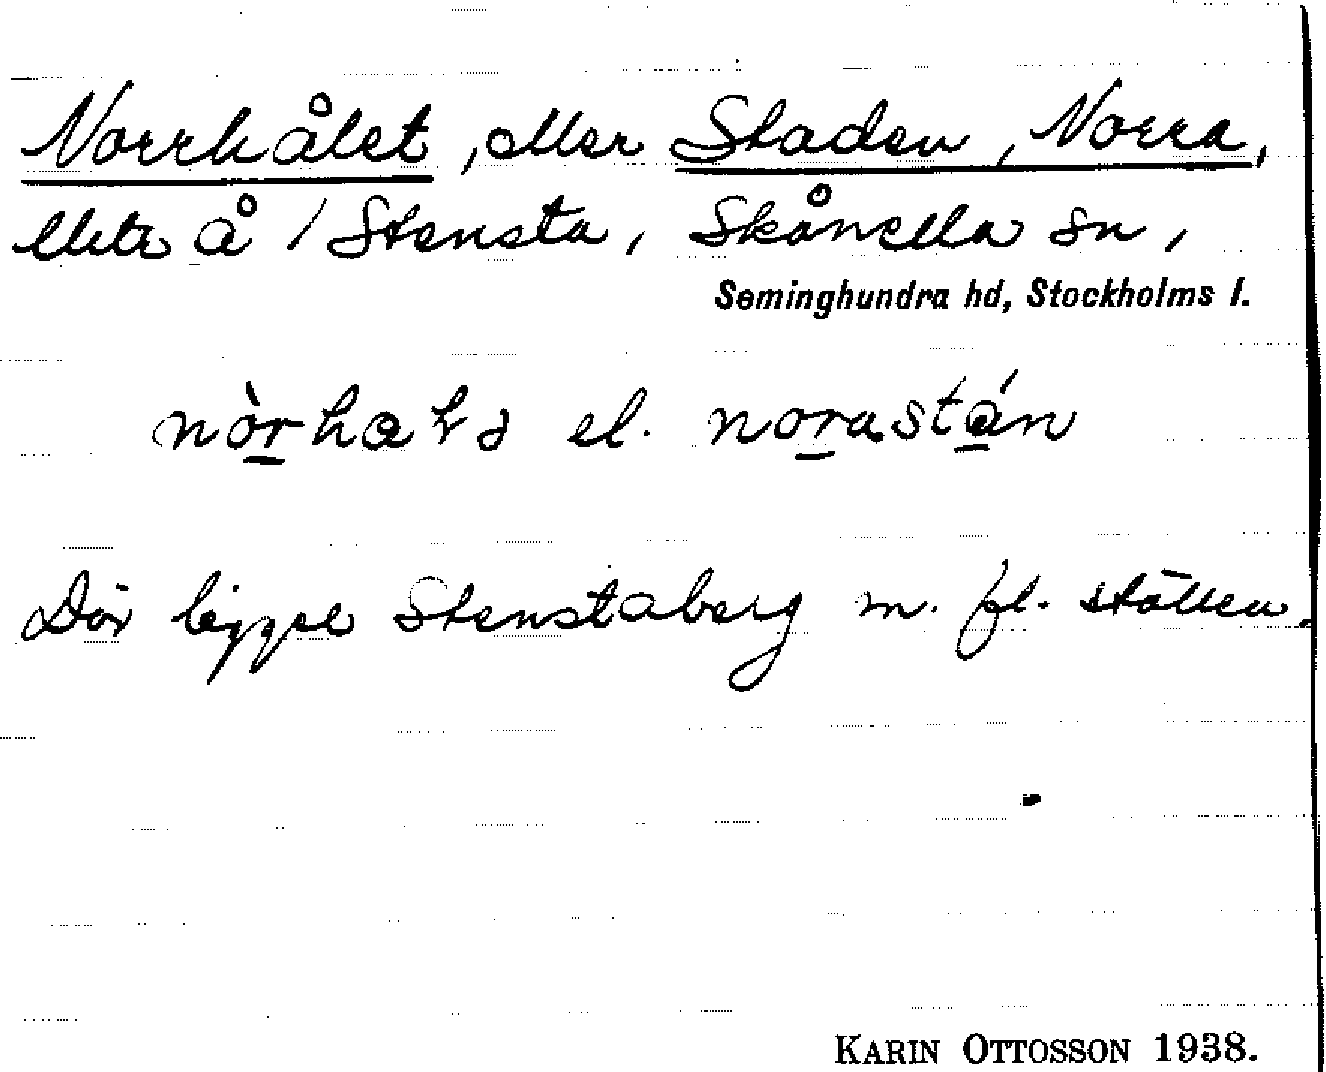 Norrhålet, eller Staden, Norra,
å / Stensta, Skånella sn,
Seminghundra hd, Stockholms l.
el. norastán
Där ligger Stenstaberg m. fl. ställen.
KARIN OTTOSSON 1938.